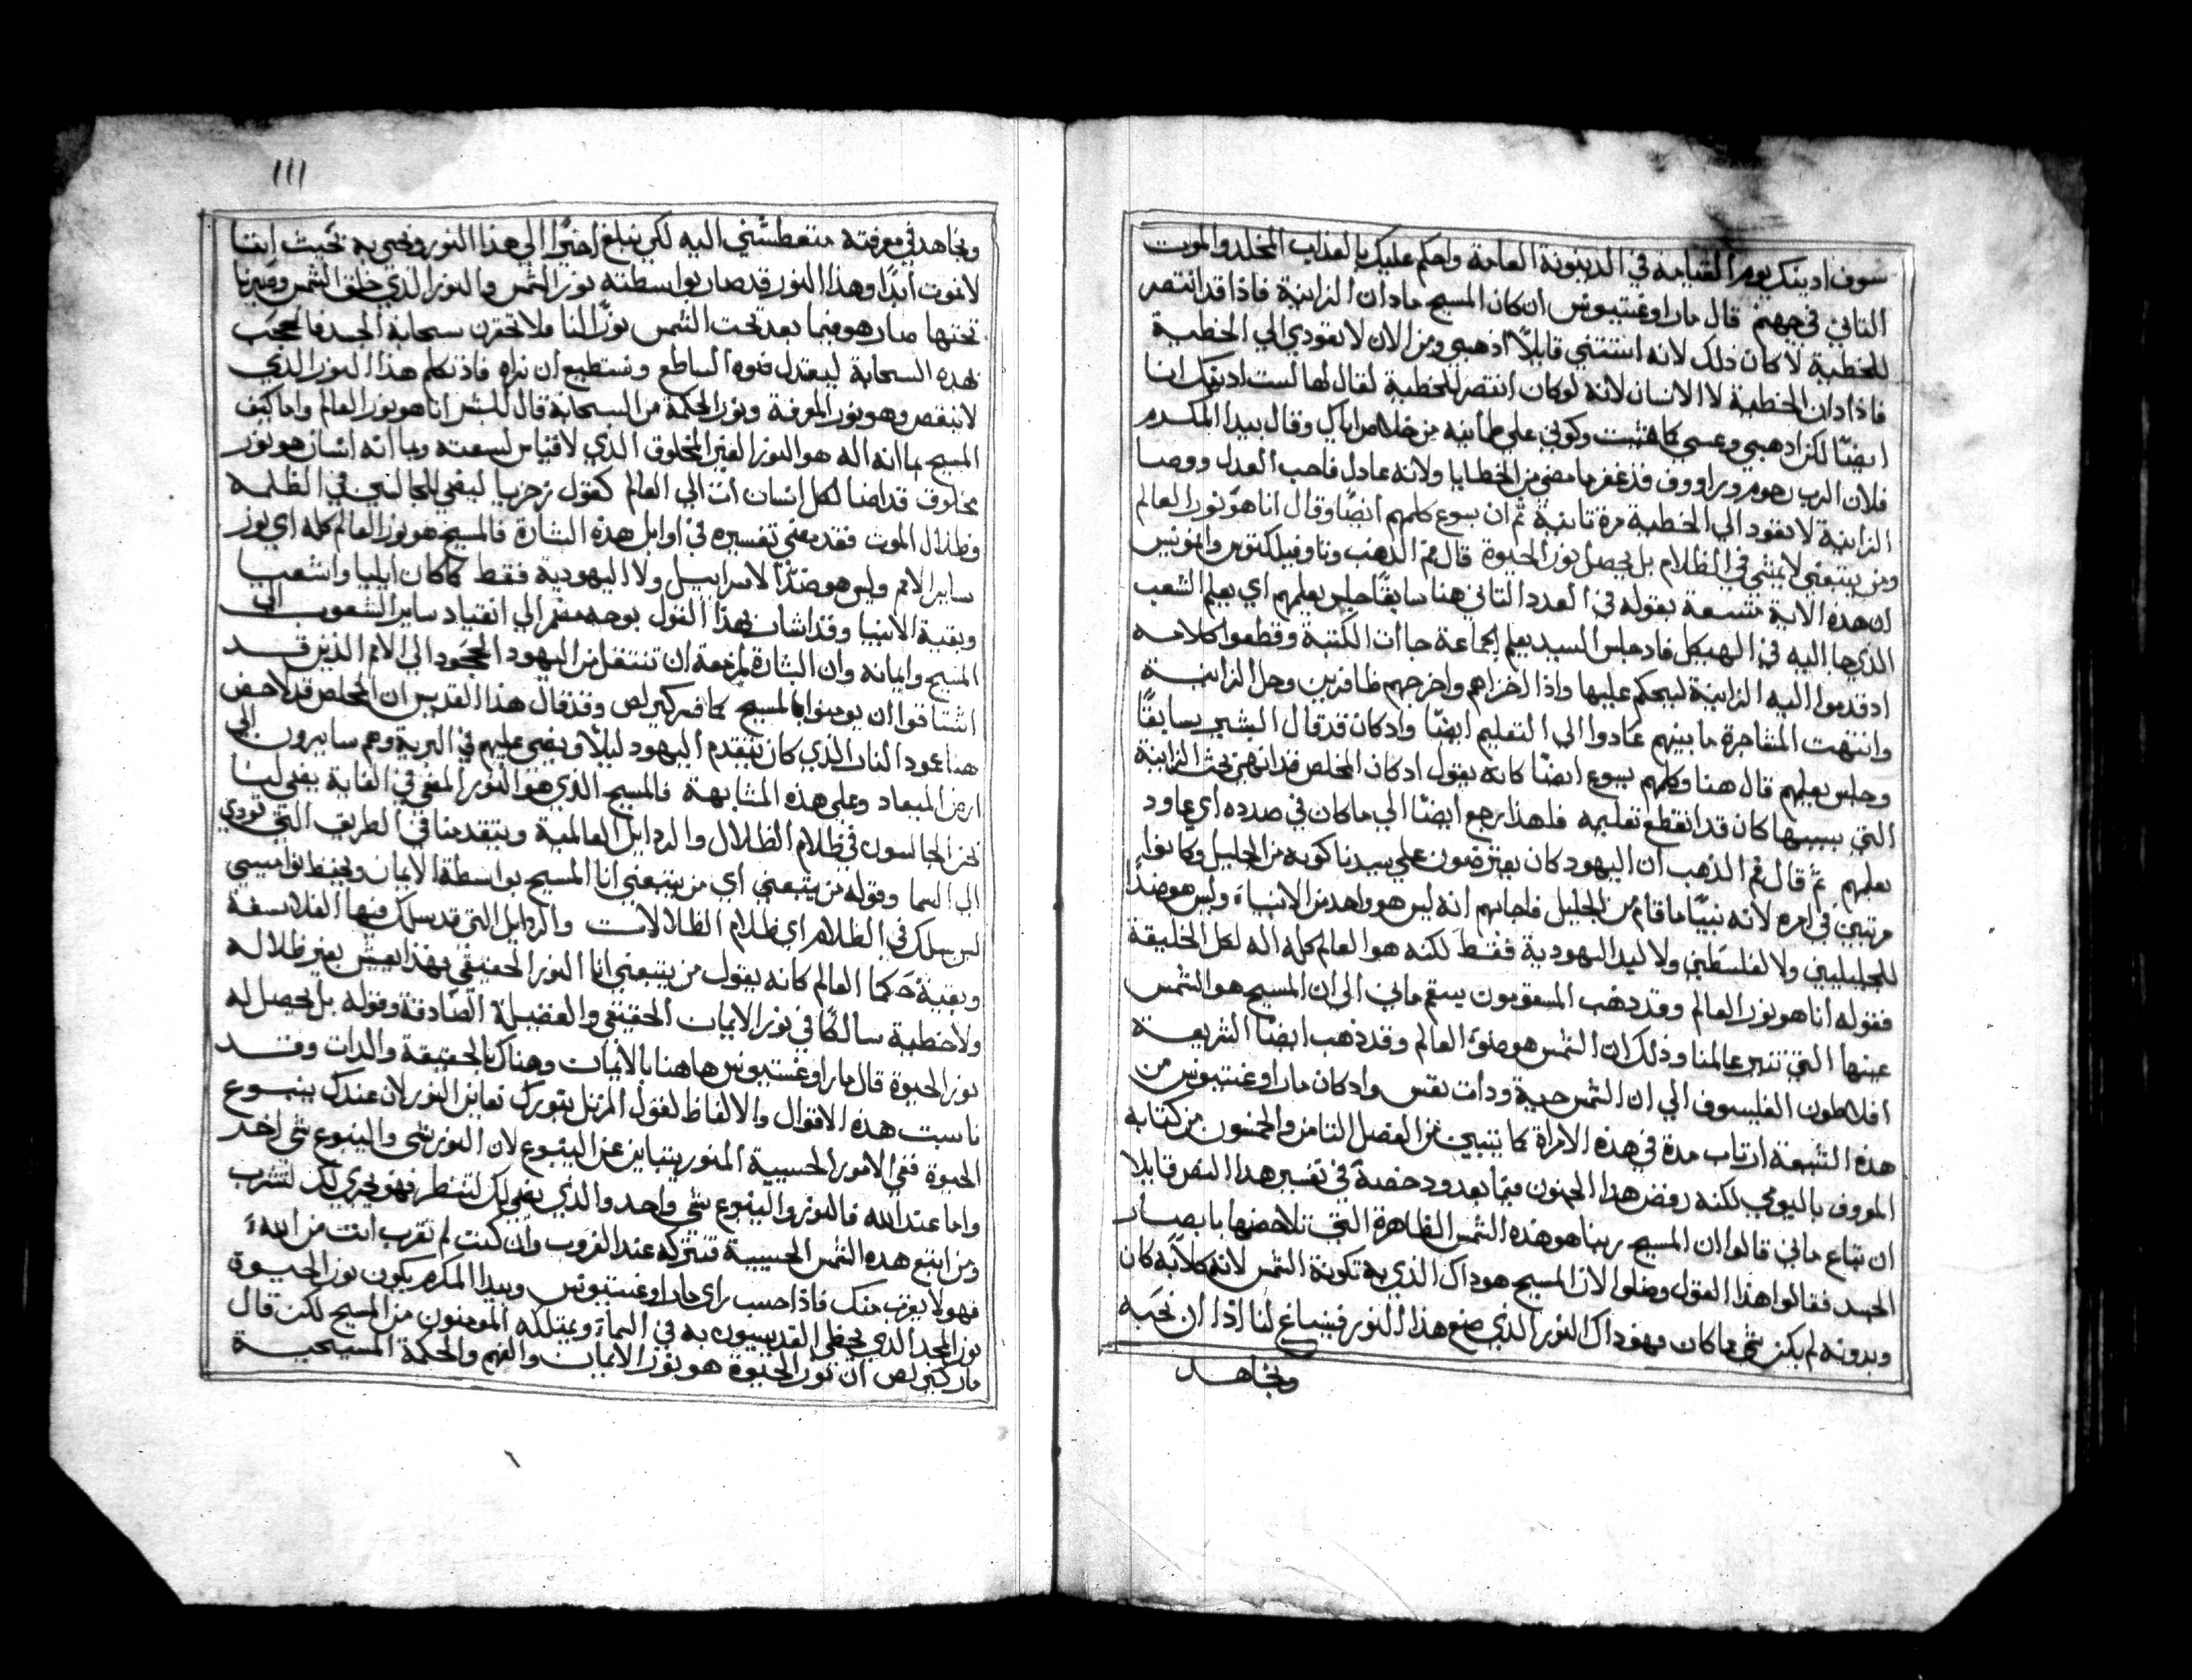 سوف ادينك يوم القيامة في الدينونة العامة واحكم عليك بالعذاب المخلد والموت
الثاني في جهنم قال مار اوغستينوس ان كان المسيح مادان الزانية فاذا قد انتصر
للخطية لا كان ذلك لانه استتني قايلاً اذهبي ومن الان لا تعودي الي الخطية
فاذا دان الخطية لا الانسان لانه لو كان انتصر للخطية لقال لها لست ادينك انا
ايضًا لكن اذهبي وعسي كما شيت وكوني علي طمانيه من خلاصي اياك وقال بيدا المكرم
فلان الرب رحوم وراووف قد غفر ما مضي من الخطايا ولانه عادل فاحب العدل ووصا
الزانية لا تعود الي الخطية مرة تانية ثم ان يسوع كلمهم ايضًا وقال انا هو نور العالم
ومن يتبعني لا يمشي في الظلام بل يحصل نور الحيوة قال فم الذهب وتاوفيلكتوس وامونيس
ان هذه الاية متسعة بقوله في العدد التاني هنا سابقًا جلس يعلمهم اي يعلم الشعب
الذي جا اليه في الهيكل فاد جلس السيد يعلم الجماعة جا ات الكتبة وقطعوا كلامه
اد قدموا اليه الزانية ليحكم عليها واذا اخزاهم واخرجهم ظافرين وحل الزانية
وانتهت المشاجرة ما بينهم عادوا الي التعليم ايضًا وادكان قد قال البشير سابقًا
وجلس يعلمهم قال هنا وكلمهم يسوع ايضًا كانه يقول ادكان المخلص قد انهي بحث الزانية
التي بسببها كان قد انقطع تعليمه فلهذا رجع ايضًا الي ما كان في صدده اي عاود
يعلمهم ثم قال فم الذهب ان اليهود كان يعترضون علي سيدنا كونه من الجليل وكانوا
مرتبين في امره لانه نبيًا ما قام من الجليل فاجابهم انه ليس هو واحد من الانبياء وليس هو ضدًا
للجليليين ولا لفلسطين ولا ليد اليهودية فقط لكنه هو العالم كله اله لكل الخليقة
فقوله انا هو نور العالم وقد ذهب المسقومون بسقم ماني الي ان المسيح هو الشمس
عينها التي تنير عالمنا وذلك ان الشمس هو ضوء العالم وقد ذهب ايضًا الشريعة
افلاطون الفليسوف الي ان الشمس حية ودات نفس وادكان مار اوغستينوس من
هذه الشيعة ارتاب مدة في هذه الامراة كما يتبين من الفصل التامن والخمسون من كتابه
المعروف باليومي لكنه رفض هذا الجنون فيما بعد ودحضه في تفسير هدا النص قايلا
ان تباع ماني قالوا ان المسيح ربنا هو هذه الشمس الظاهرة التي تلاحضها بابصار
الجسد فقالوا هذا القول وضلوا لان المسيح هو داك الذي به تكونة الشمس لانه كلا به كان
وبدونه لم يكن شي مما كان فهو داك النور الذي صنع هذا النور فينباغ لنا اذا ان نحبه
ونجاهد
١١١
ونجاهد في معرفته متعطشني اليه لكي نبلغ اخيرًا الي هذا النور ونحيي به بحيث اننا
لا نموت ابدًا وهذا النور قد صار بواسطته نور الشمس والنور الذي خلق الشمس وصيرنا
تحتها صار هو فيما بعد تحت الشمس نورًا لنا فلا تحقرن سحابة الجسد فالحجب
بهذه السحابة ليعتدل ضوه الساطع ونستطيع ان نراه فاد تكلم هذا النور الذي
لا ينقص وهو نور المعرفة ونور الحكمة من السحابة قال للبشر انا هو نور العالم واما كيف
المسيح بما انه اله هو النور الغير المخلوق الذي لا قياس لسعته وبما انه انسان هو نور
مخلوف قد اضا لكل انسان ات الي العالم كقول زخريا ليضي للجالسين في الظلمه
وظلال الموت فقد مضي تفسيره في اوايل هذه البشارة فالمسيح هو نور العالم كله اي نور
ساير الامم وليس هو ضدًا لاسراييل ولا اليهودية فقط كما كان ايليا واشعيا
وبقية الانبيا وقد اشار بهذا القول بوجه مضمر الي انقياد ساير الشعوب الي
المسيح وايمانه وان البشارة لمزمعة ان تنتقل من اليهود الجحود الي الامم الذين قد
اشتاقوا ان يومنوا بالمسيح كما فسر كيرلص وقد قال هذا القديس ان المخلص قد لاحض
هنا عمود النار الذي كان يتقدم اليهود ليلاً ويضي عليهم في البرية وهم سايرون الي
ارض الميعاد وعلي هذه المشابهة فالمسيح الذي هو النور المضي في الغاية يضي لنا
نحن الجالسون في ظلام الظلال والردايل العالمية ويتقدمنا في الطريف التي تودي
الي السما وقوله من يتبعني اي من يتبعني انا المسيح بواسطة الايمان ويحفظ نواميسي
ليس يسلك في الظلام اي ظلام الظلالات والردايل التي قد يسلك فيها الفلاسفة
وبقية حكما العالم كانه يقول من يتبعني انا النور الحقيقي فهذا يعيش بغير ظلاله
ولا خطية سالكًا في نور الايمان الحقيقي والفضيلة الصادقة وقوله بل يحصل له
نور الحيوة قال مار اوغستينوس هاهنا بالايمات وهناك بالحقيقة والدات وقد
ناسبت هذه الاقوال والالفاظ لقول المرتل بنورك نعاين النور لان عندك ينبوع
الحيوة ففي الامور الحسيية المنور يتباين عن الينبوع لان النور شي والينبوع شي اخر
واما عند الله فالنور والينبوع شي واحد والذي يضي لك لتنظر فهو يجري لك لتشرب
ومن اتبع هذه الشمس الحسيية فتتركه عند الغروب وان كنت لم تقرب انت من الله
فهو لا يغرب منك فاذا حسب راي مار اوغستينوس وبيدا المكرم يكون نور الحيوة
نور المجد الذي يحظي القديسون به في السماء ويمتلكه المومنون من المسيح لكن قال
مار كيرلص ان نور الحيوة هو نور الايمان والفهم والحكمة المسيحية